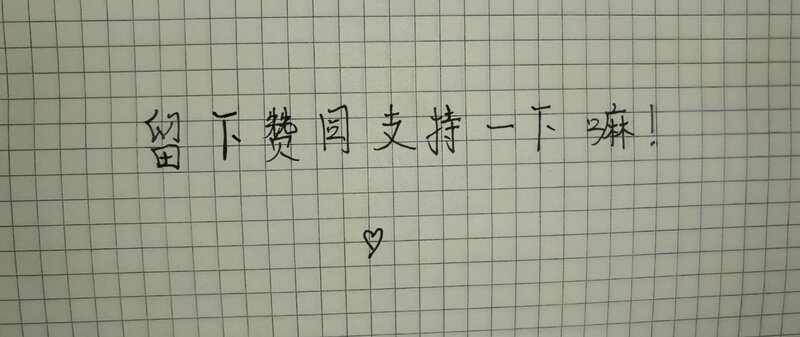 留下赞同支持一下嘛！
♡